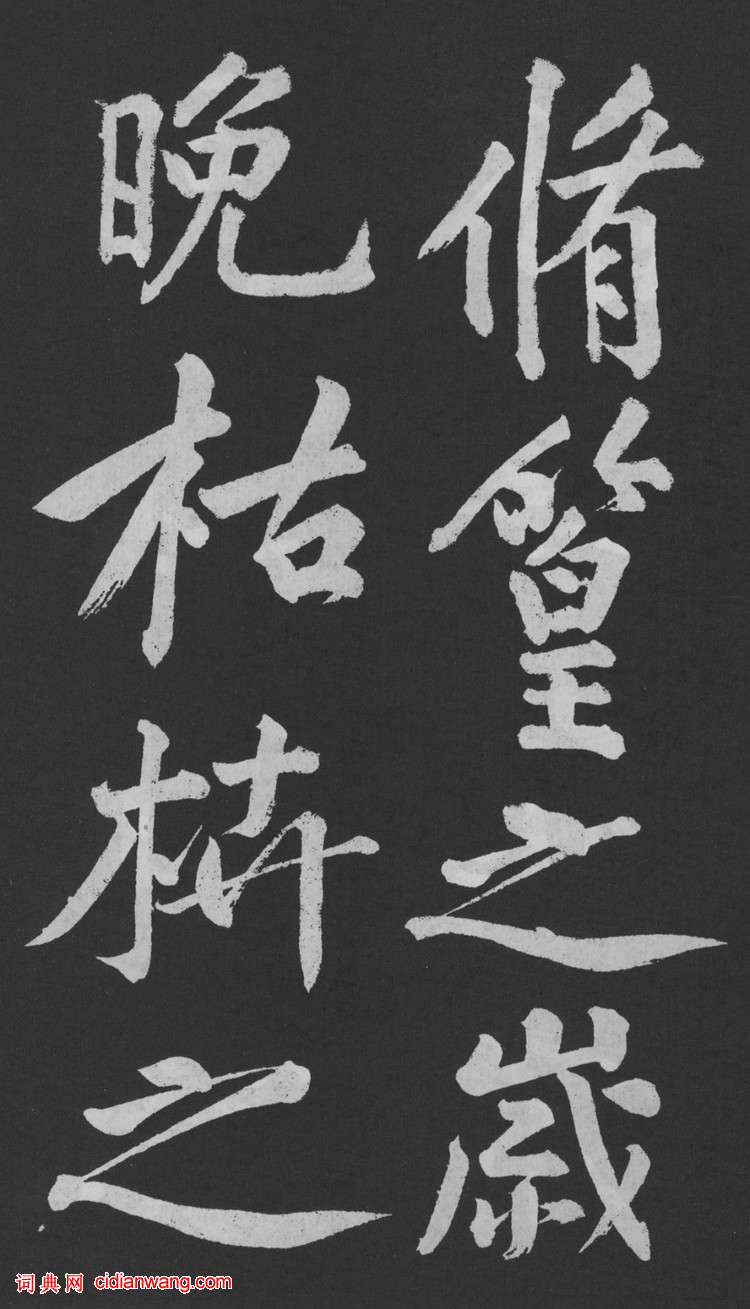 脩篁之歲
晚枯枿之
词典网 cidianwang.com